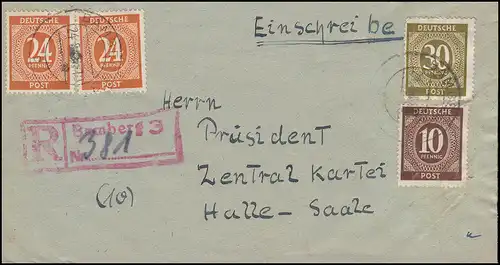 DEUTSCHE DEUTSCHE
24 24
PFENNIG PFENNIG
POST POST
Einschreibe
DEUTSCHE
30
PFENNIG
POST
DEUTSCHE
10
PFENNIG
POST
R Bamberg 3
Nr. 381
Herrn
Präsident
Zentral Kartei
Halle-Saale
(10)